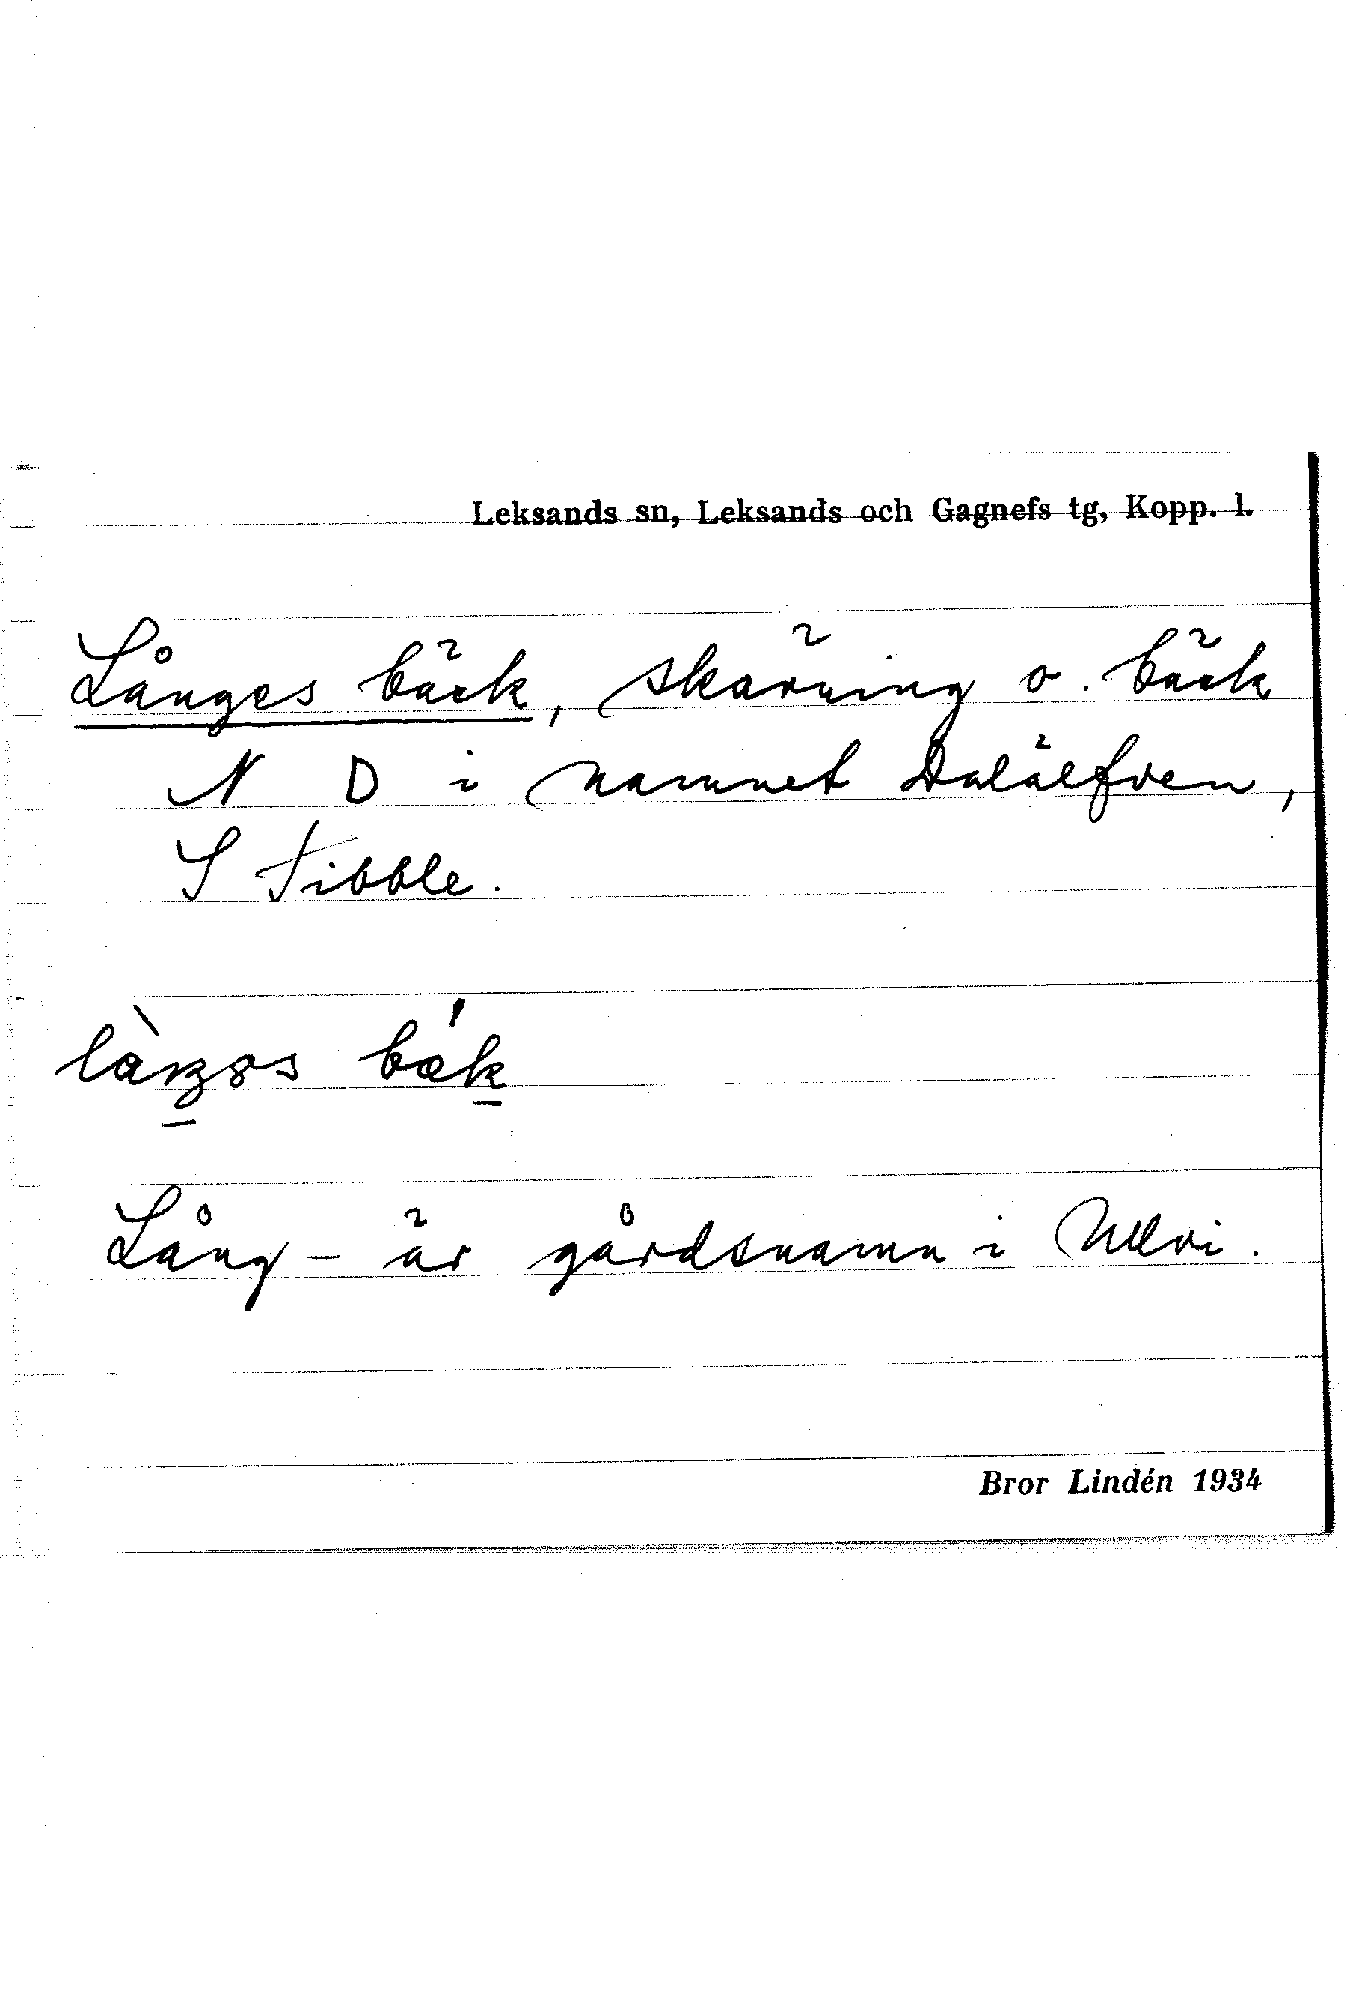 Leksands sn, Leksands och Gagnefs tg, Kopp. l.
Långes bäck, skärning o. bäck
N D i namnet Dalälfven,
S Tibble.
bæk
Lång- är gårdsnamn i Ullvi.
Bror Lindén 1934